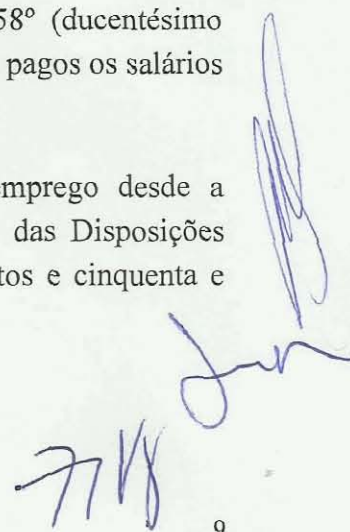 58º (ducentésimo
pagos os salários
emprego desde a
das Disposições
tos e cinquenta e
9